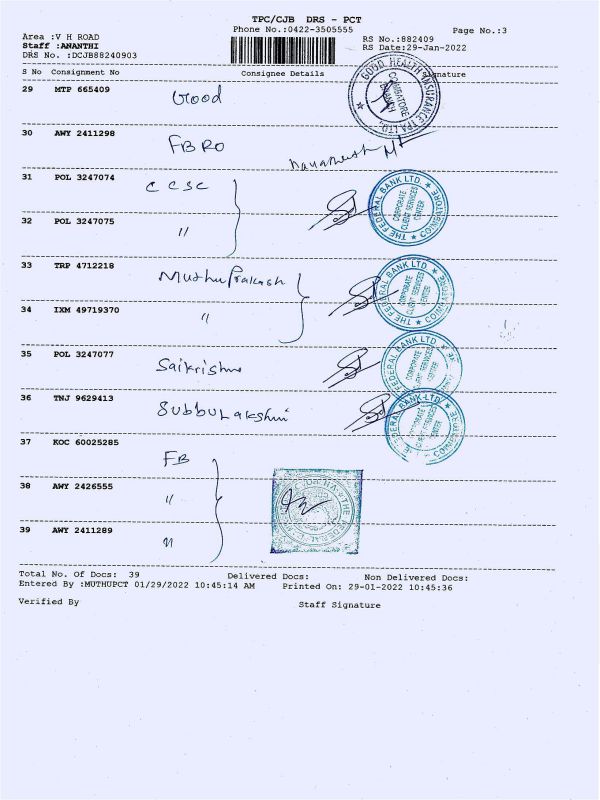 TPC/CJB DRS - PCT
Phone No.:0422-3505555
Page No.:3
Area :V H ROAD
Staff :ANANTHI
DRS No. :DCJB88240903
RS No.:882409
RS Date:29-Jan-2022
S No Consignment No Consignee Details Signature
29 MTP 665409 Good
GOOD HEALTH INSURANCE TPA LTD. ★
COIMBATORE BRANCH
30 AWY 2411298 FBRO
31 POL 3247074 CCSC
32 POL 3247075 "
THE FEDERAL BANK LTD. ★ COIMBATORE ★
CORPORATE CLIENT SERVICES CENTER
33 TRP 4712218 Muthu Prakash
34 IXM 49719370 "
THE FEDERAL BANK LTD. ★ COIMBATORE ★
CORPORATE CLIENT SERVICES CENTER
35 POL 3247077 Saikrishna
FEDERAL BANK LTD.
CORPORATE CLIENT SERVICES CENTER
36 TNJ 9629413 Subbulakshmi
FEDERAL BANK LTD
CORPORATE CLIENT SERVICES CENTER
37 KOC 60025285 FB
38 AWY 2426555 "
39 AWY 2411289 "
THE FEDERAL
Total No. Of Docs: 39 Delivered Docs: Non Delivered Docs:
Entered By :MUTHUPCT 01/29/2022 10:45:14 AM Printed On: 29-01-2022 10:45:36
Verified By Staff Signature